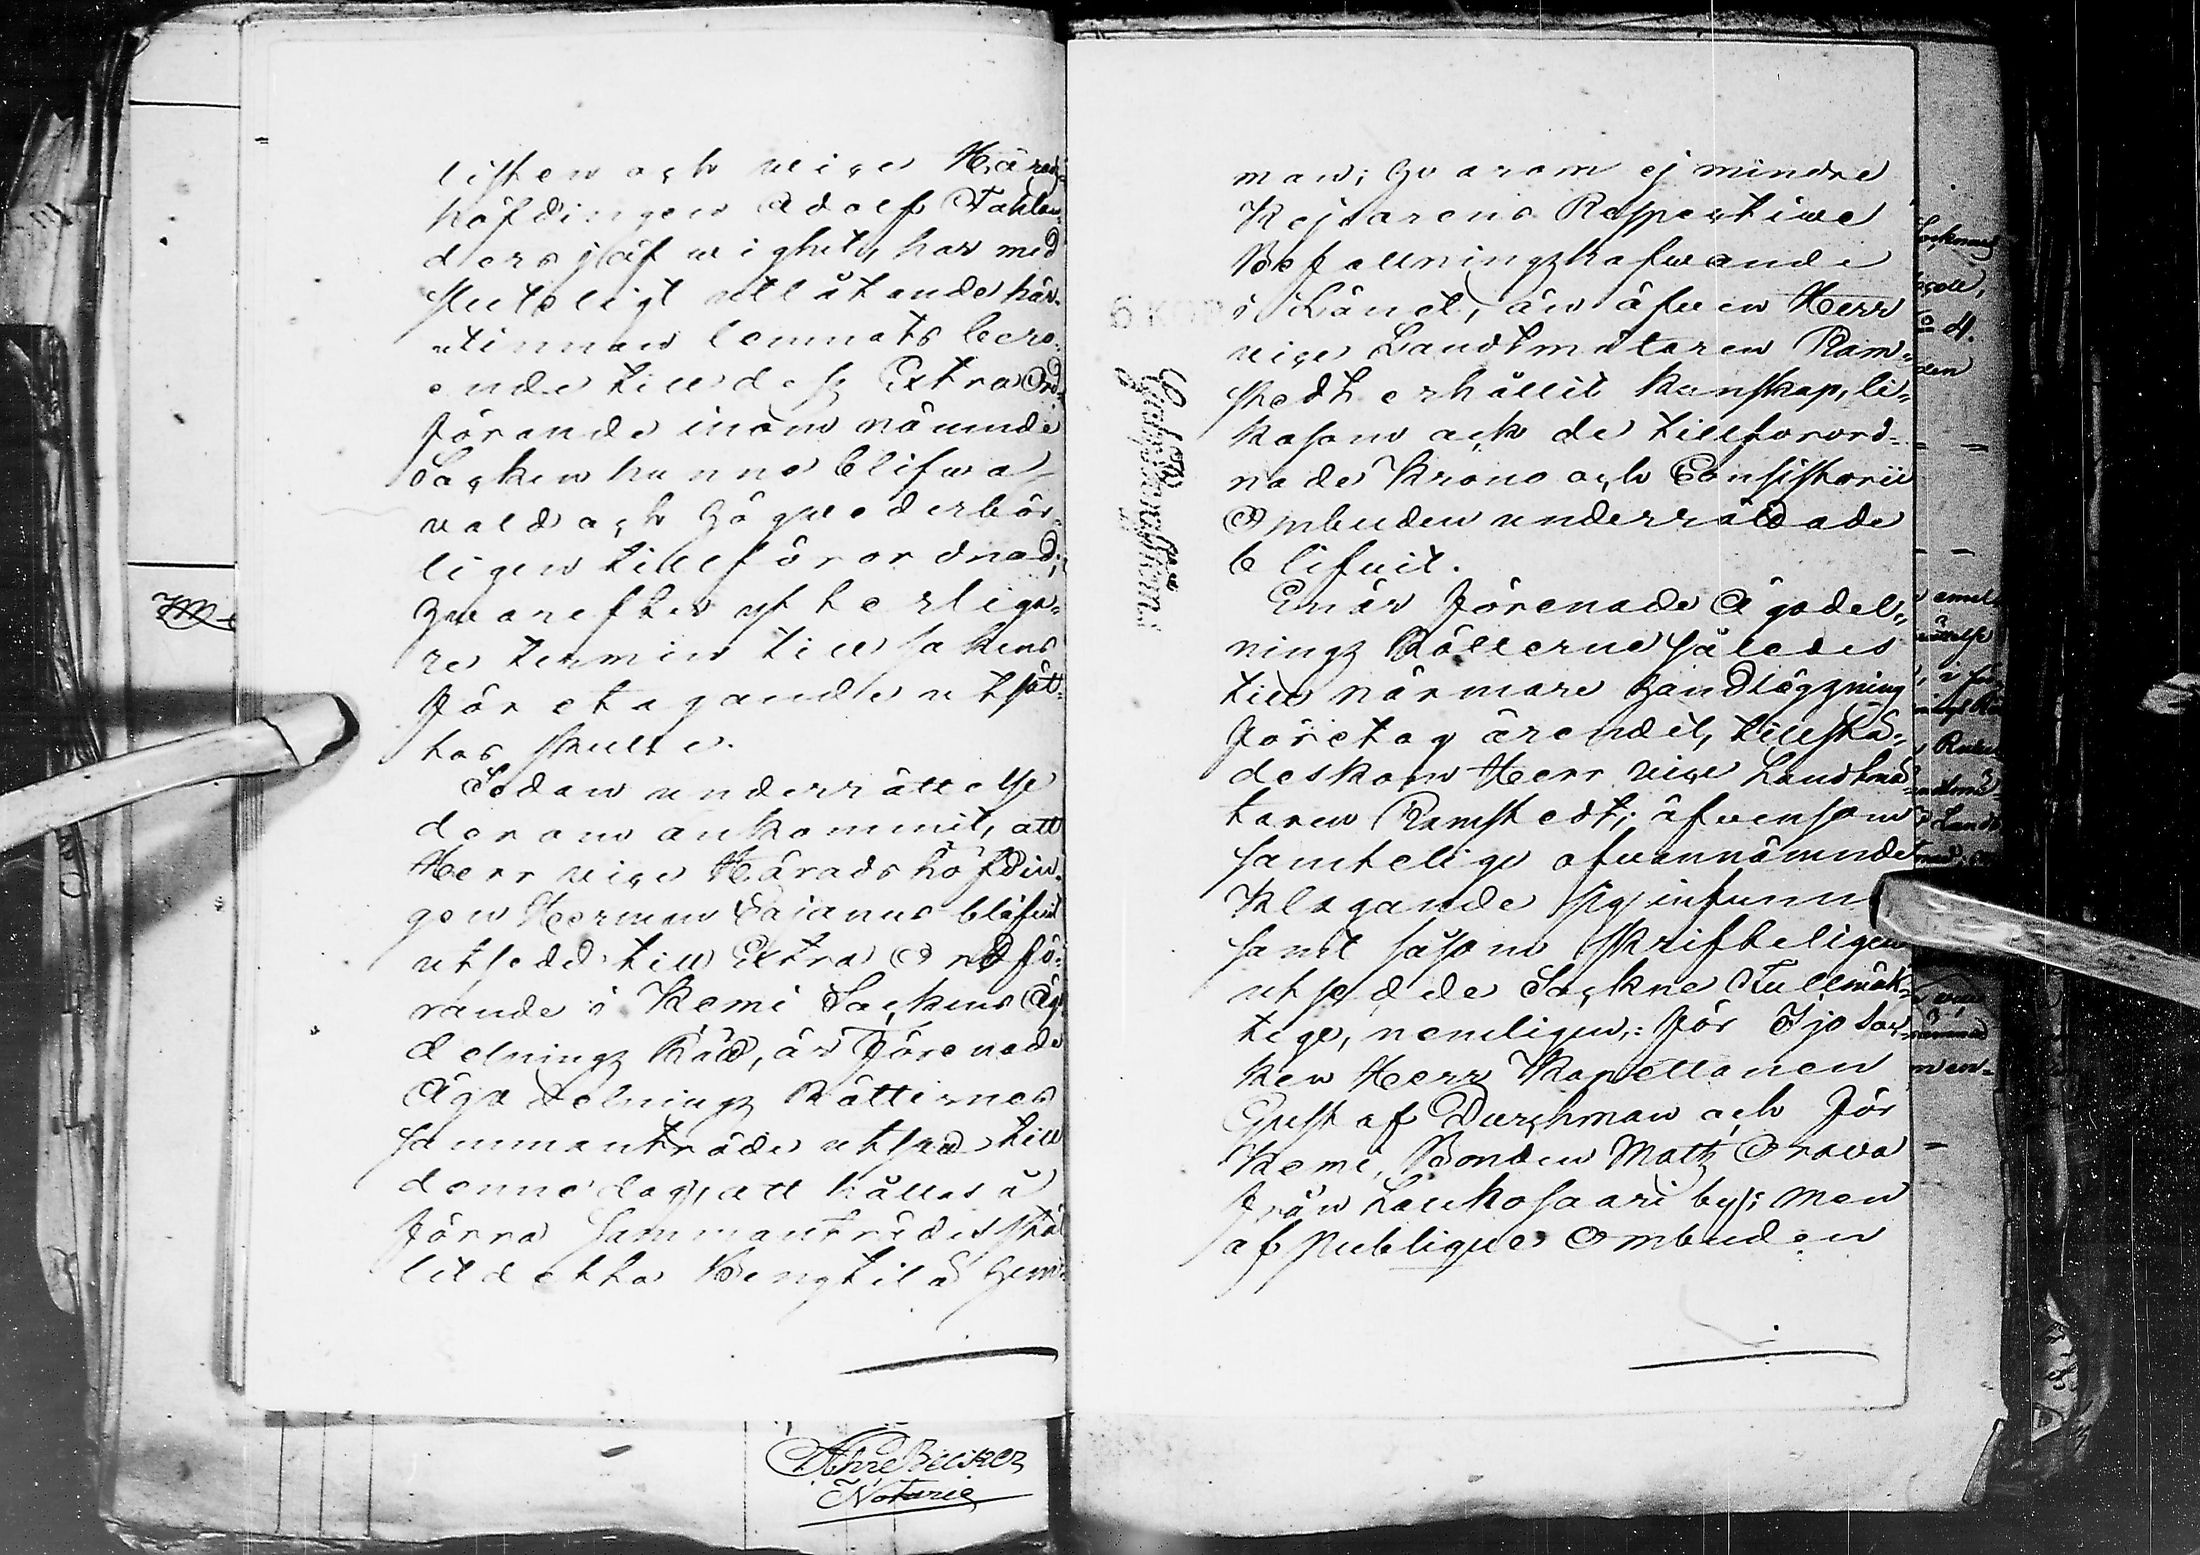 listen och vice Härads-
höfdingen Adolf Fahlan-
ders jäfwighet, har med
sluteligt utlåtande här-
utinnan lemnats bero-
ende till dess Extra Ord-
förande inom nämnde
Socken hunne blifwa
vald och högwederbör-
ligen tillförordnad;
hwarefter ytterliga-
re termin till sakens
företagande utsät-
tas skulle.
Sedan underrättelse
derom ankommit, att
Herr vice Häradshöfdin-
gen Herman Cajanus blifwit
utsedd till Extra Ordfö-
rande i Kemi Sockens Äge
delnings Rätt, är Förenade
Ägo delnings Rätternes
sammanträde utsedd till
denne dag, att hållas å
förra sammanträdes stäl
let detta Bengtilä Hem-
Ahre Belitzer
Notarie
man; hvarom ej mindre
Kejsarens Respective
Befallningshafwande
i Länet, än äfwen Herr
vice Landtmätaren Ram-
stedt erhållit kunskap, li-
kasom ock de tillförord-
nade Krono och Consistorii
Ombuden underrättade
blifwit.
Enär Förenade Ägodel-
nings Rätterne således
till närmare handläggning
företog ärendet, tillstä-
deskom Herr vice Landtmä-
taren Ramstedt; äfwensom
samtelige ofwannämnde
Klagande sig infunn
samt såsom skrifteligen
utsedde Sockne Fullmäk-
tige, nemligen: för Ijo Soc-
ken Herr Kapellanen
Gustaf Durchman och för
Kemi, Bonden Matts Orava
från Laukosaari by; men
af publique Ombuden